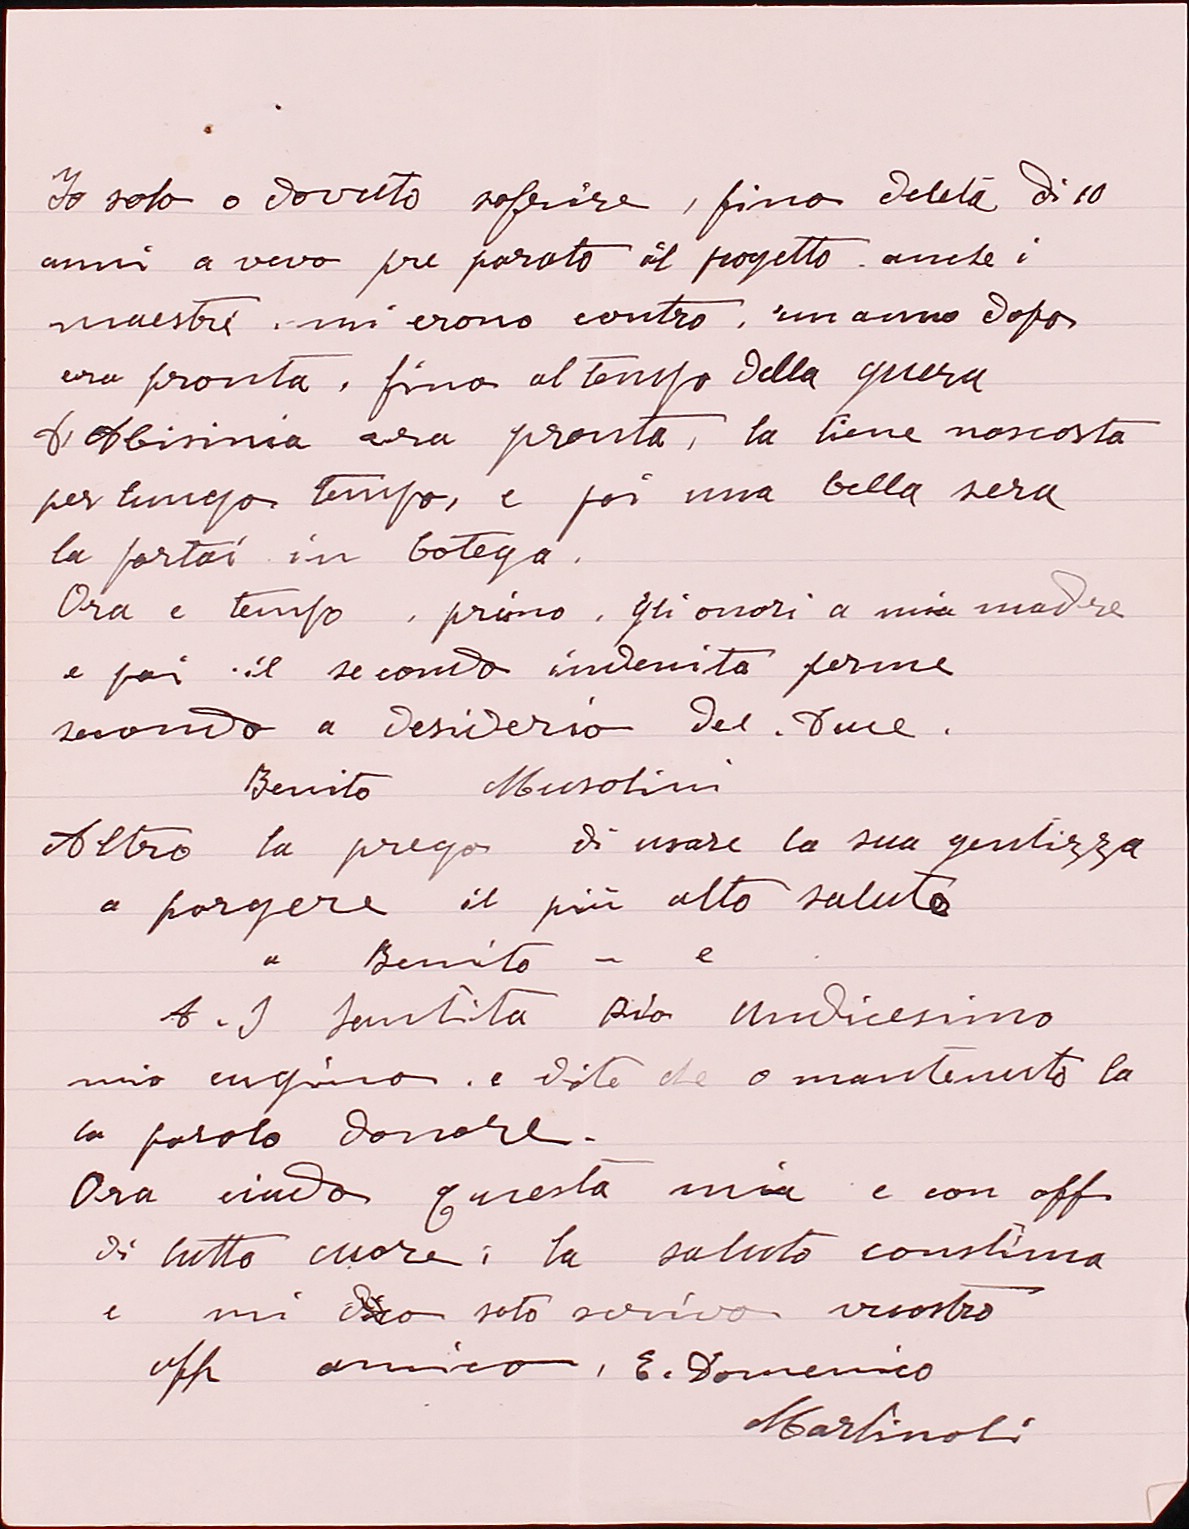 Io solo o dovuto sofrire, fino deletà di 10
anni a vevo pre parato il progetto. anche i
maestri. mi erono contro, un anno dopo
era pronta, fino al tempo della guera
D'Abisinia era pronta, la tiene noscosta
per lungo tempo, e poi una bella sera
la portai in botega.
Ora e tempo, primo, gli onori a mia madre
e poi il secondo indenita ferme
secondo a desiderio del. Duce.
Benito Musolini
Altro la prego di usare la sua gentizza
a porgere il più alto saluto
a Benito - e
A. S Santita Pio Undicesimo
mio cugino. e dite che o mantenuto la
la parola donore.
Ora ciudo questa mia e con aff
di tutto cuore; la saluto constima
e mi dico soto scrivo vuostro
aff amico, E. Domenico
Martinoli